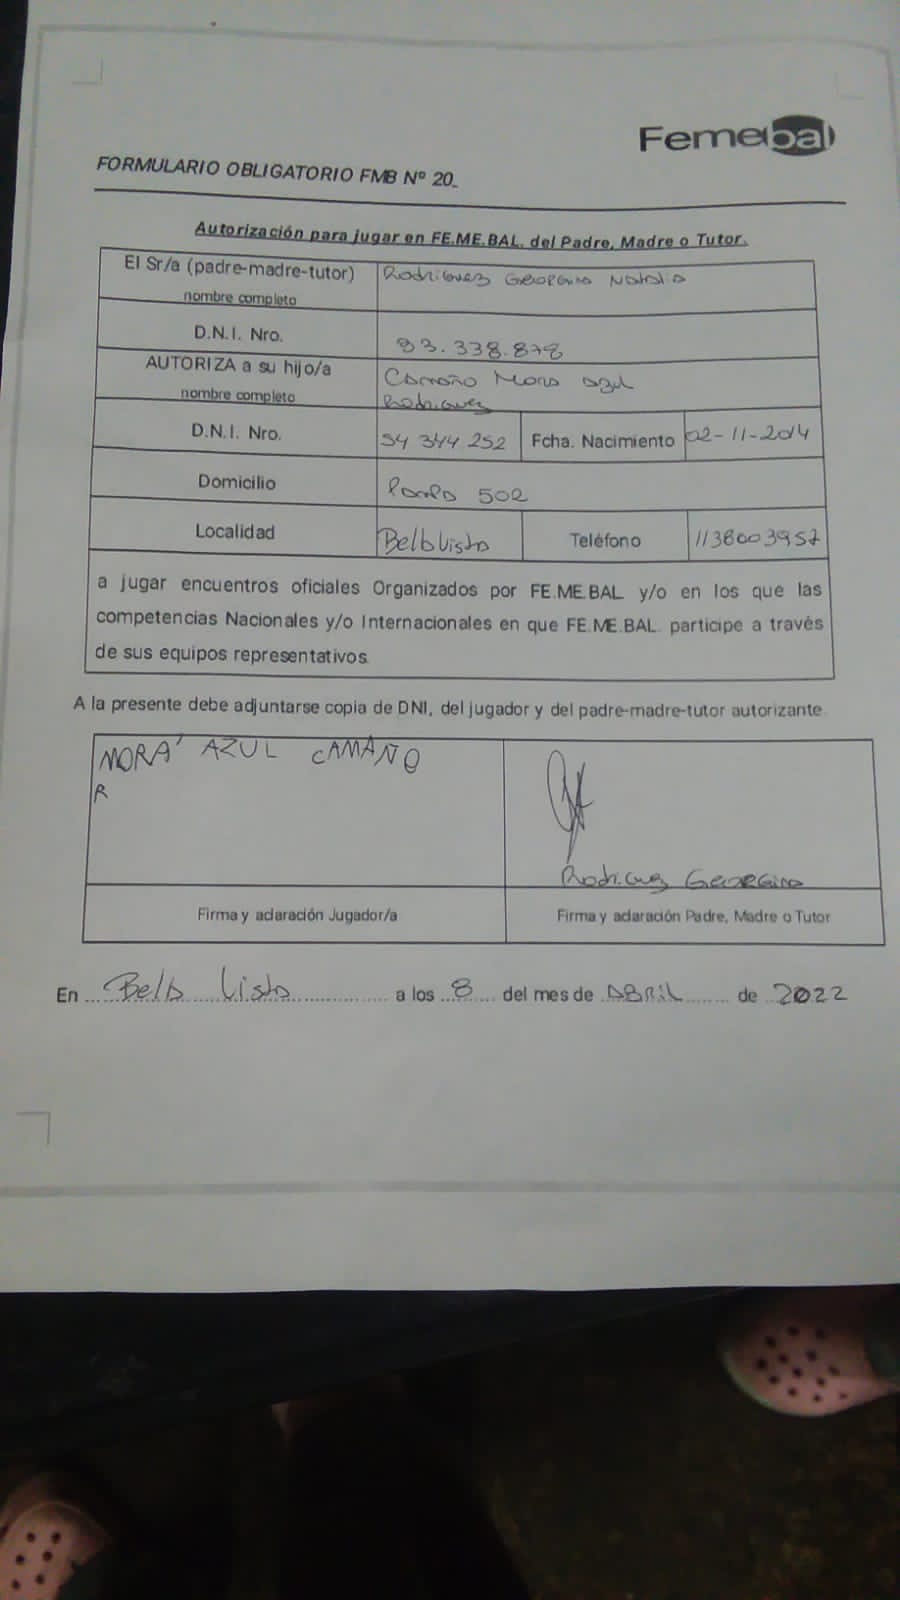 Femebal
FORMULARIO OBLIGATORIO FMB Nº 20.
Autorización para jugar en FE.ME.BAL. del Padre, Madre o Tutor.
El Sr/a (padre-madre-tutor) Rodriguez Georgina Natalia
nombre completo
D.N.I. Nro. 93.338.878
AUTORIZA a su hijo/a Camaño Mora Azul
nombre completo Rodriguez
D.N.I. Nro. 54 344 252 Fcha. Nacimiento 02-11-2014
Domicilio Pampa 502
Localidad Bella Vista Teléfono 1138003957
a jugar encuentros oficiales Organizados por FE.ME.BAL. y/o en los que las
competencias Nacionales y/o Internacionales en que FE.ME.BAL. participe a través
de sus equipos representativos.
A la presente debe adjuntarse copia de DNI, del jugador y del padre-madre-tutor autorizante.
MORA AZUL CAMAÑO
R
Rodriguez Georgina
Firma y aclaración Jugador/a Firma y aclaración Padre, Madre o Tutor
En Bella Vista a los 8 del mes de ABRIL de 2022